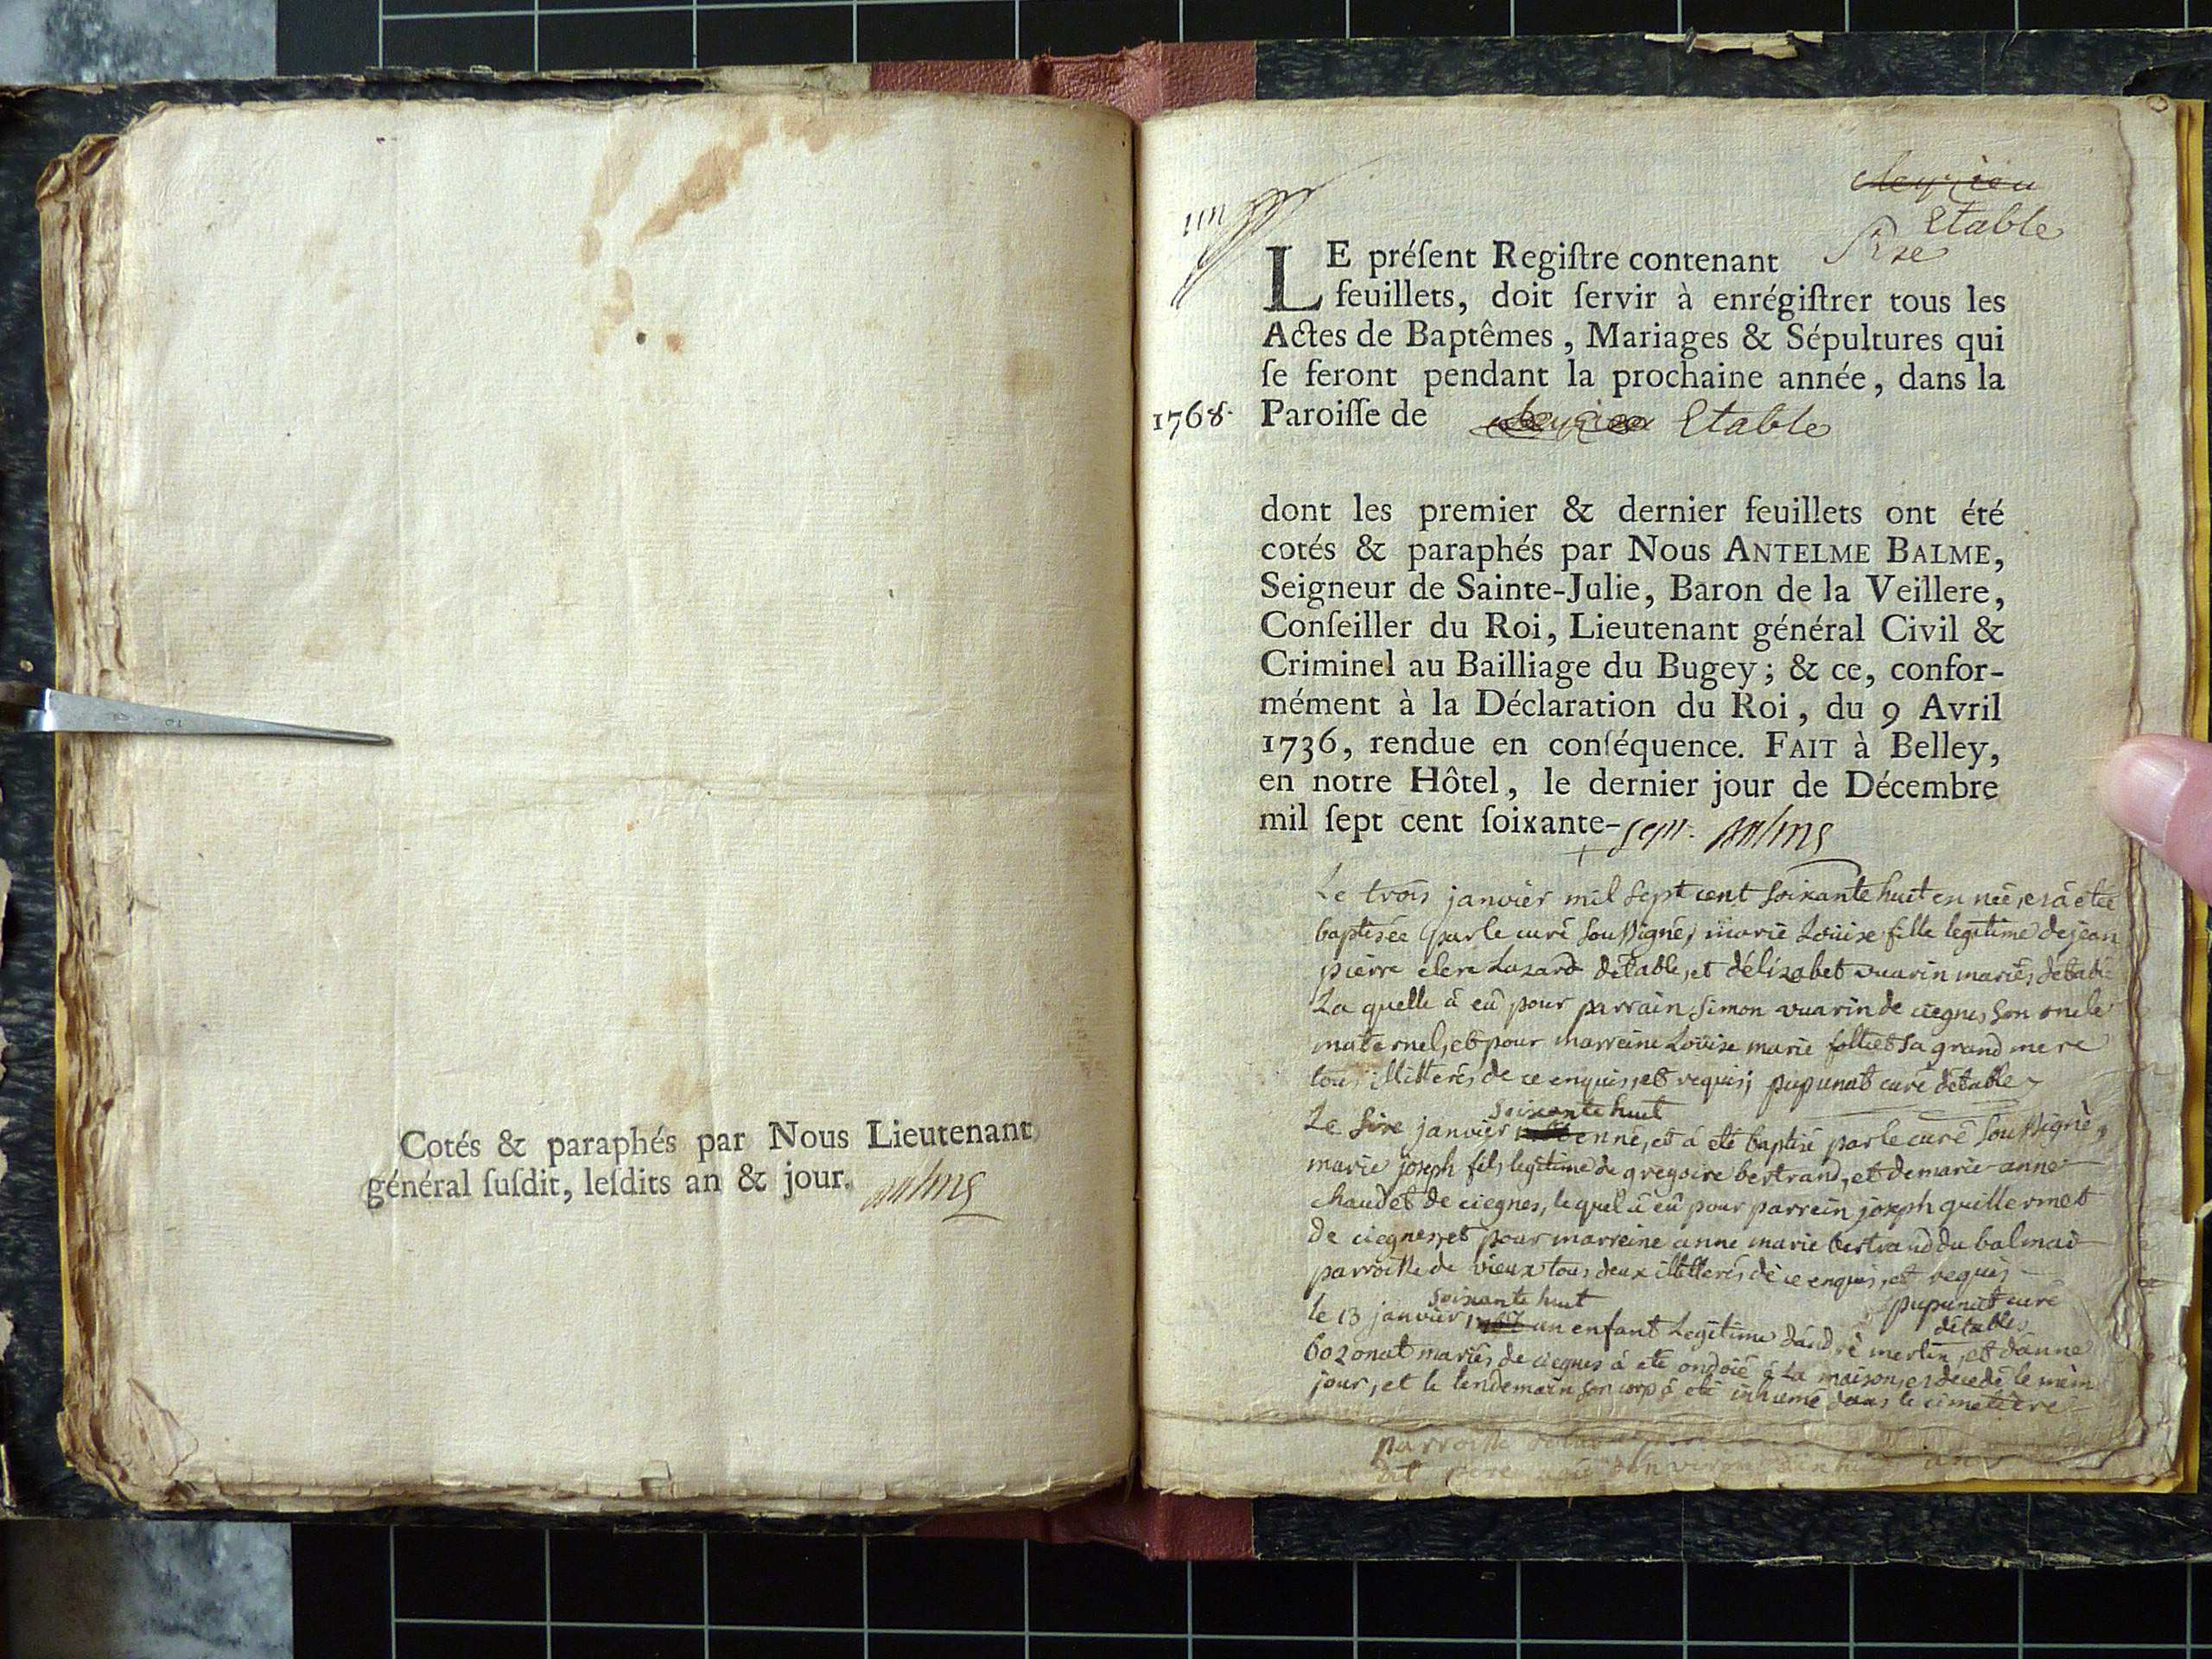 Cotés & paraphés par Nous Lieutenant
général ſuſdit, leſdits an & jour. Balme
Etable
LE préſent Regiſtre contenant
feuillets, doit ſervir à enrégiſtrer tous les
Actes de Baptêmes, Mariages & Sépultures qui
ſe feront pendant la prochaine année, dans la
1768. Paroiſſe de Etable
dont les premier & dernier feuillets ont été
cotés & paraphés par Nous ANTELME BALME,
Seigneur de Sainte-Julie, Baron de la Veillere,
Conſeiller du Roi, Lieutenant général Civil &
Criminel au Bailliage du Bugey; & ce, confor-
mément à la Déclaration du Roi, du 9 Avril
1736, rendue en conſéquence. FAIT à Belley,
en notre Hôtel, le dernier jour de Décembre
mil ſept cent ſoixante-sept. Balme
Le trois janvier mil sept cent soixante huit en neé, et à eteé
baptisée par le curé soussigné, marie Loüise fille legitime de jean
pierre Lazard détable, et délizabet vuarin mariés détable
La quelle à eû pour parrain simon vuarin de ciegnes son oncle
maternel, et pour marreine Loüise marie folliet sa grand mere
tous illitterés de ce enquis, et requis; pupunat curé détable
soixante huit
Le janvier enné, et à eté baptisé par le curé soussigné,
marie joseph fils legitime de gregoire bertrand, et de marie anne
chaudet de ciegnes, lequel à eû pour parrein joseph guillermet
de ciegnes, et pour marreine anne marie bertrand du balmai
parroisse de vieux tous deux illitterés de ce enquis, et requis
pupunat curé
détable
soixante huit
le 13 janvier un enfant Legitime dandré merlin, et dànne
bozonat mariés de ciegnes à eté ondoié à La maison, et decedé le mêm
jour, et le lendemain son corp à eté inhumé dans le cimetière
parroisse
dit pere